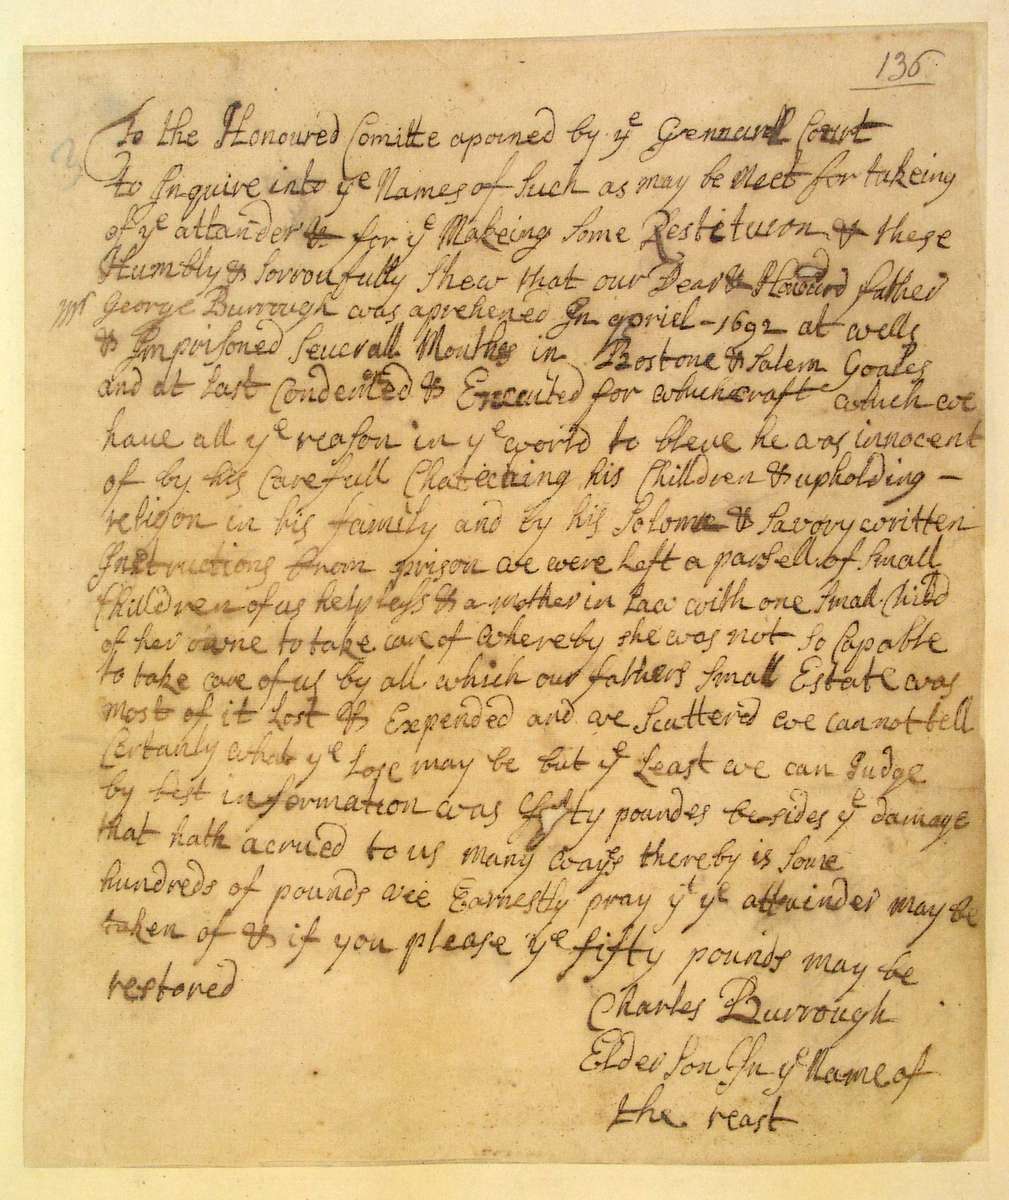 136
To the Honoured Comitte apoined by yᵉ Gennarall Court
to Inquire into yᵉ Names of Such as may be Meet for takeing
of yᵉ attander & for yᵉ Makeing Some Restituion & these
Humbly & Sorroufully Shew that our Dear & Honourd father
Mr George Burrough was aprehened In apriel - 1692 at wells
& Imprisoned Severall Monthes in Bostone & Salem Goales
and at Last Condemed & Executed for whichcraft which we
have all yᵉ reason in yᵉ world to bleve he was innocent
of by his Carefull Chateching his Chilldren & upholding -
religon in his family and by his Solomn & Savory written
Instructions from prison we were Left a parsell of Small
Chilldren of us helpless & a mother in Law with one Small Child
of her owne to take care of whereby she was not so Capable
to take care of us by all which our fathers Small Estate was
most of it Lost & Expended and we Scattered we cannot tell
Certanly what yᵉ Lose may be but yᵉ Least we can Judge
by best information was fifty poundes besides yᵉ damage
that hath acrued to us many ways thereby is Some
hundreds of pounds wee Earnestly pray yᵗ yᵉ attainder may be
taken of & if you please yᵉ fifty pounds may be
restored
Charles Burrough
Elder Son In yᵉ Name of
the reast